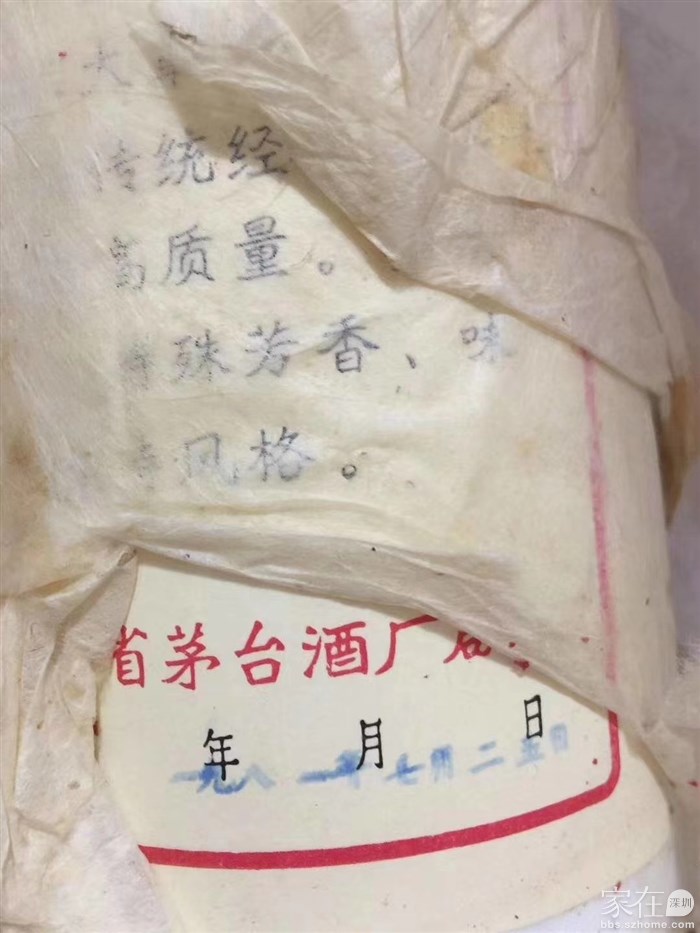 传统经
高质量。
殊芳香、味
风格。
省茅台酒厂
年 月 日
一九八一年七月二五日
家在深圳
bbs.szhome.com